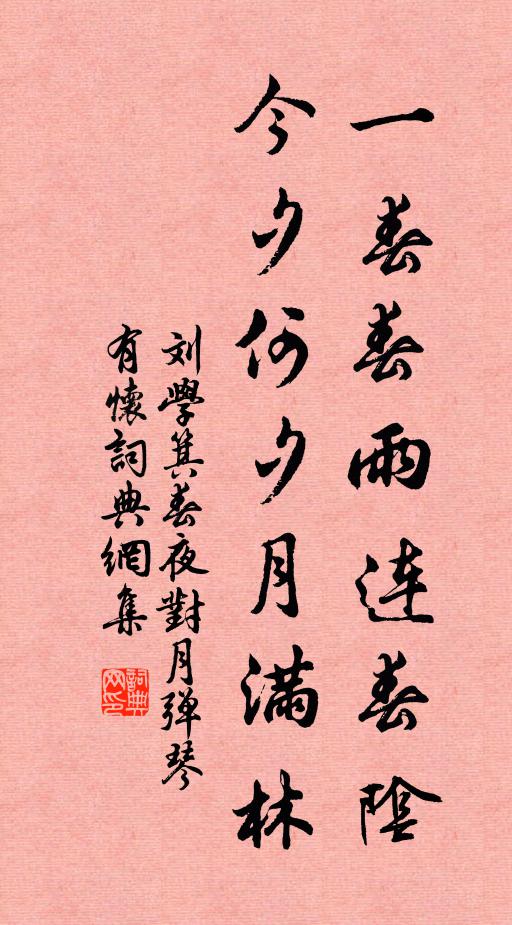 一春春雨连春陰
今夕何夕月满林
刘學箕春夜對月弹琴
有懷詞典網集
詞典网印